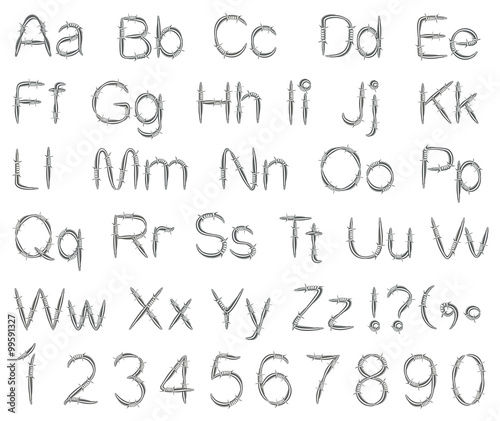 Aa Bb Cc Dd Ee
Ff Gg Hh Ii Jj Kk
Ll Mm Nn Oo Pp
Qq Rr Ss Tt Uu Vv
Ww Xx Yy Zz!?(;,.
1234567890
99591327
Adobe Stock